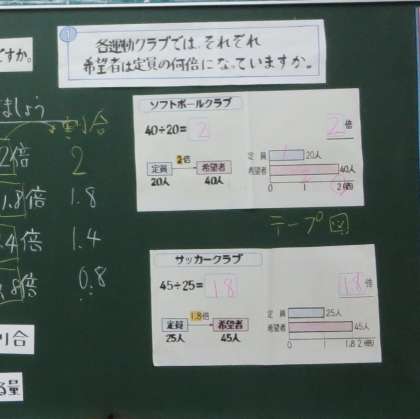 ①
各運動クラブでは、それぞれ
希望者は定員の何倍になっていますか。
ですか。
ましょう
割合
2倍 2
1.8倍 1.8
.4倍 1.4
.8倍 0.8
ソフトボールクラブ
40÷20= 2
2倍
2倍
定員 希望者
20人 40人
定員 20人
希望者 40人
0 1 2(倍)
テープ図
サッカークラブ
45÷25= 1.8
1.8倍
1.8倍
定員 希望者
25人 45人
定員 25人
希望者 45人
0 1 1.8 2(倍)
合
量